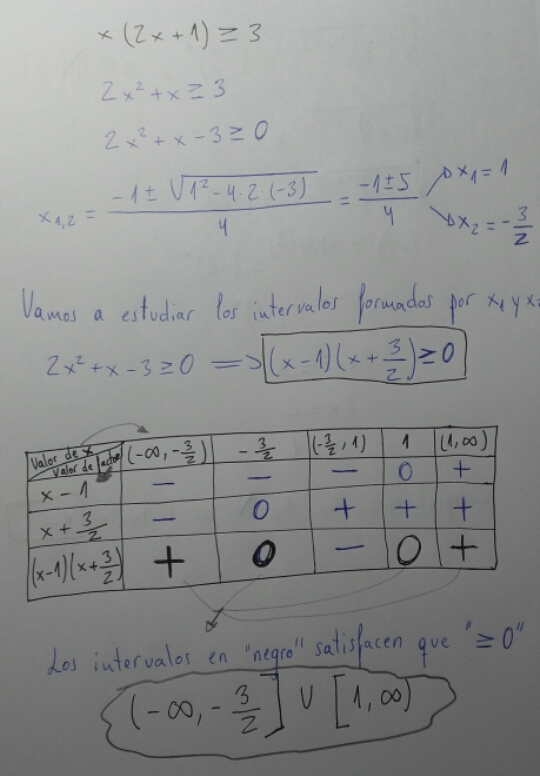 x(2x+1) ≥ 3
2x² + x ≥ 3
2x² + x - 3 ≥ 0
x₁,₂ = (-1 ± √(1² - 4·2·(-3)))/4 = (-1 ± 5)/4 → x₁ = 1 → x₂ = -3/2
Vamos a estudiar los intervalos formados por x₁ y x₂
2x² + x - 3 ≥ 0 ⟹ (x-1)(x+3/2) ≥ 0
Valor de x (-∞, -3/2) -3/2 (-3/2, 1) 1 (1, ∞)
Valor de factor
x - 1 - - - 0 +
x + 3/2 - 0 + + +
(x-1)(x+3/2) + 0 - 0 +
Los intervalos en "negro" satisfacen que "≥ 0"
(-∞, -3/2] ∪ [1, ∞)